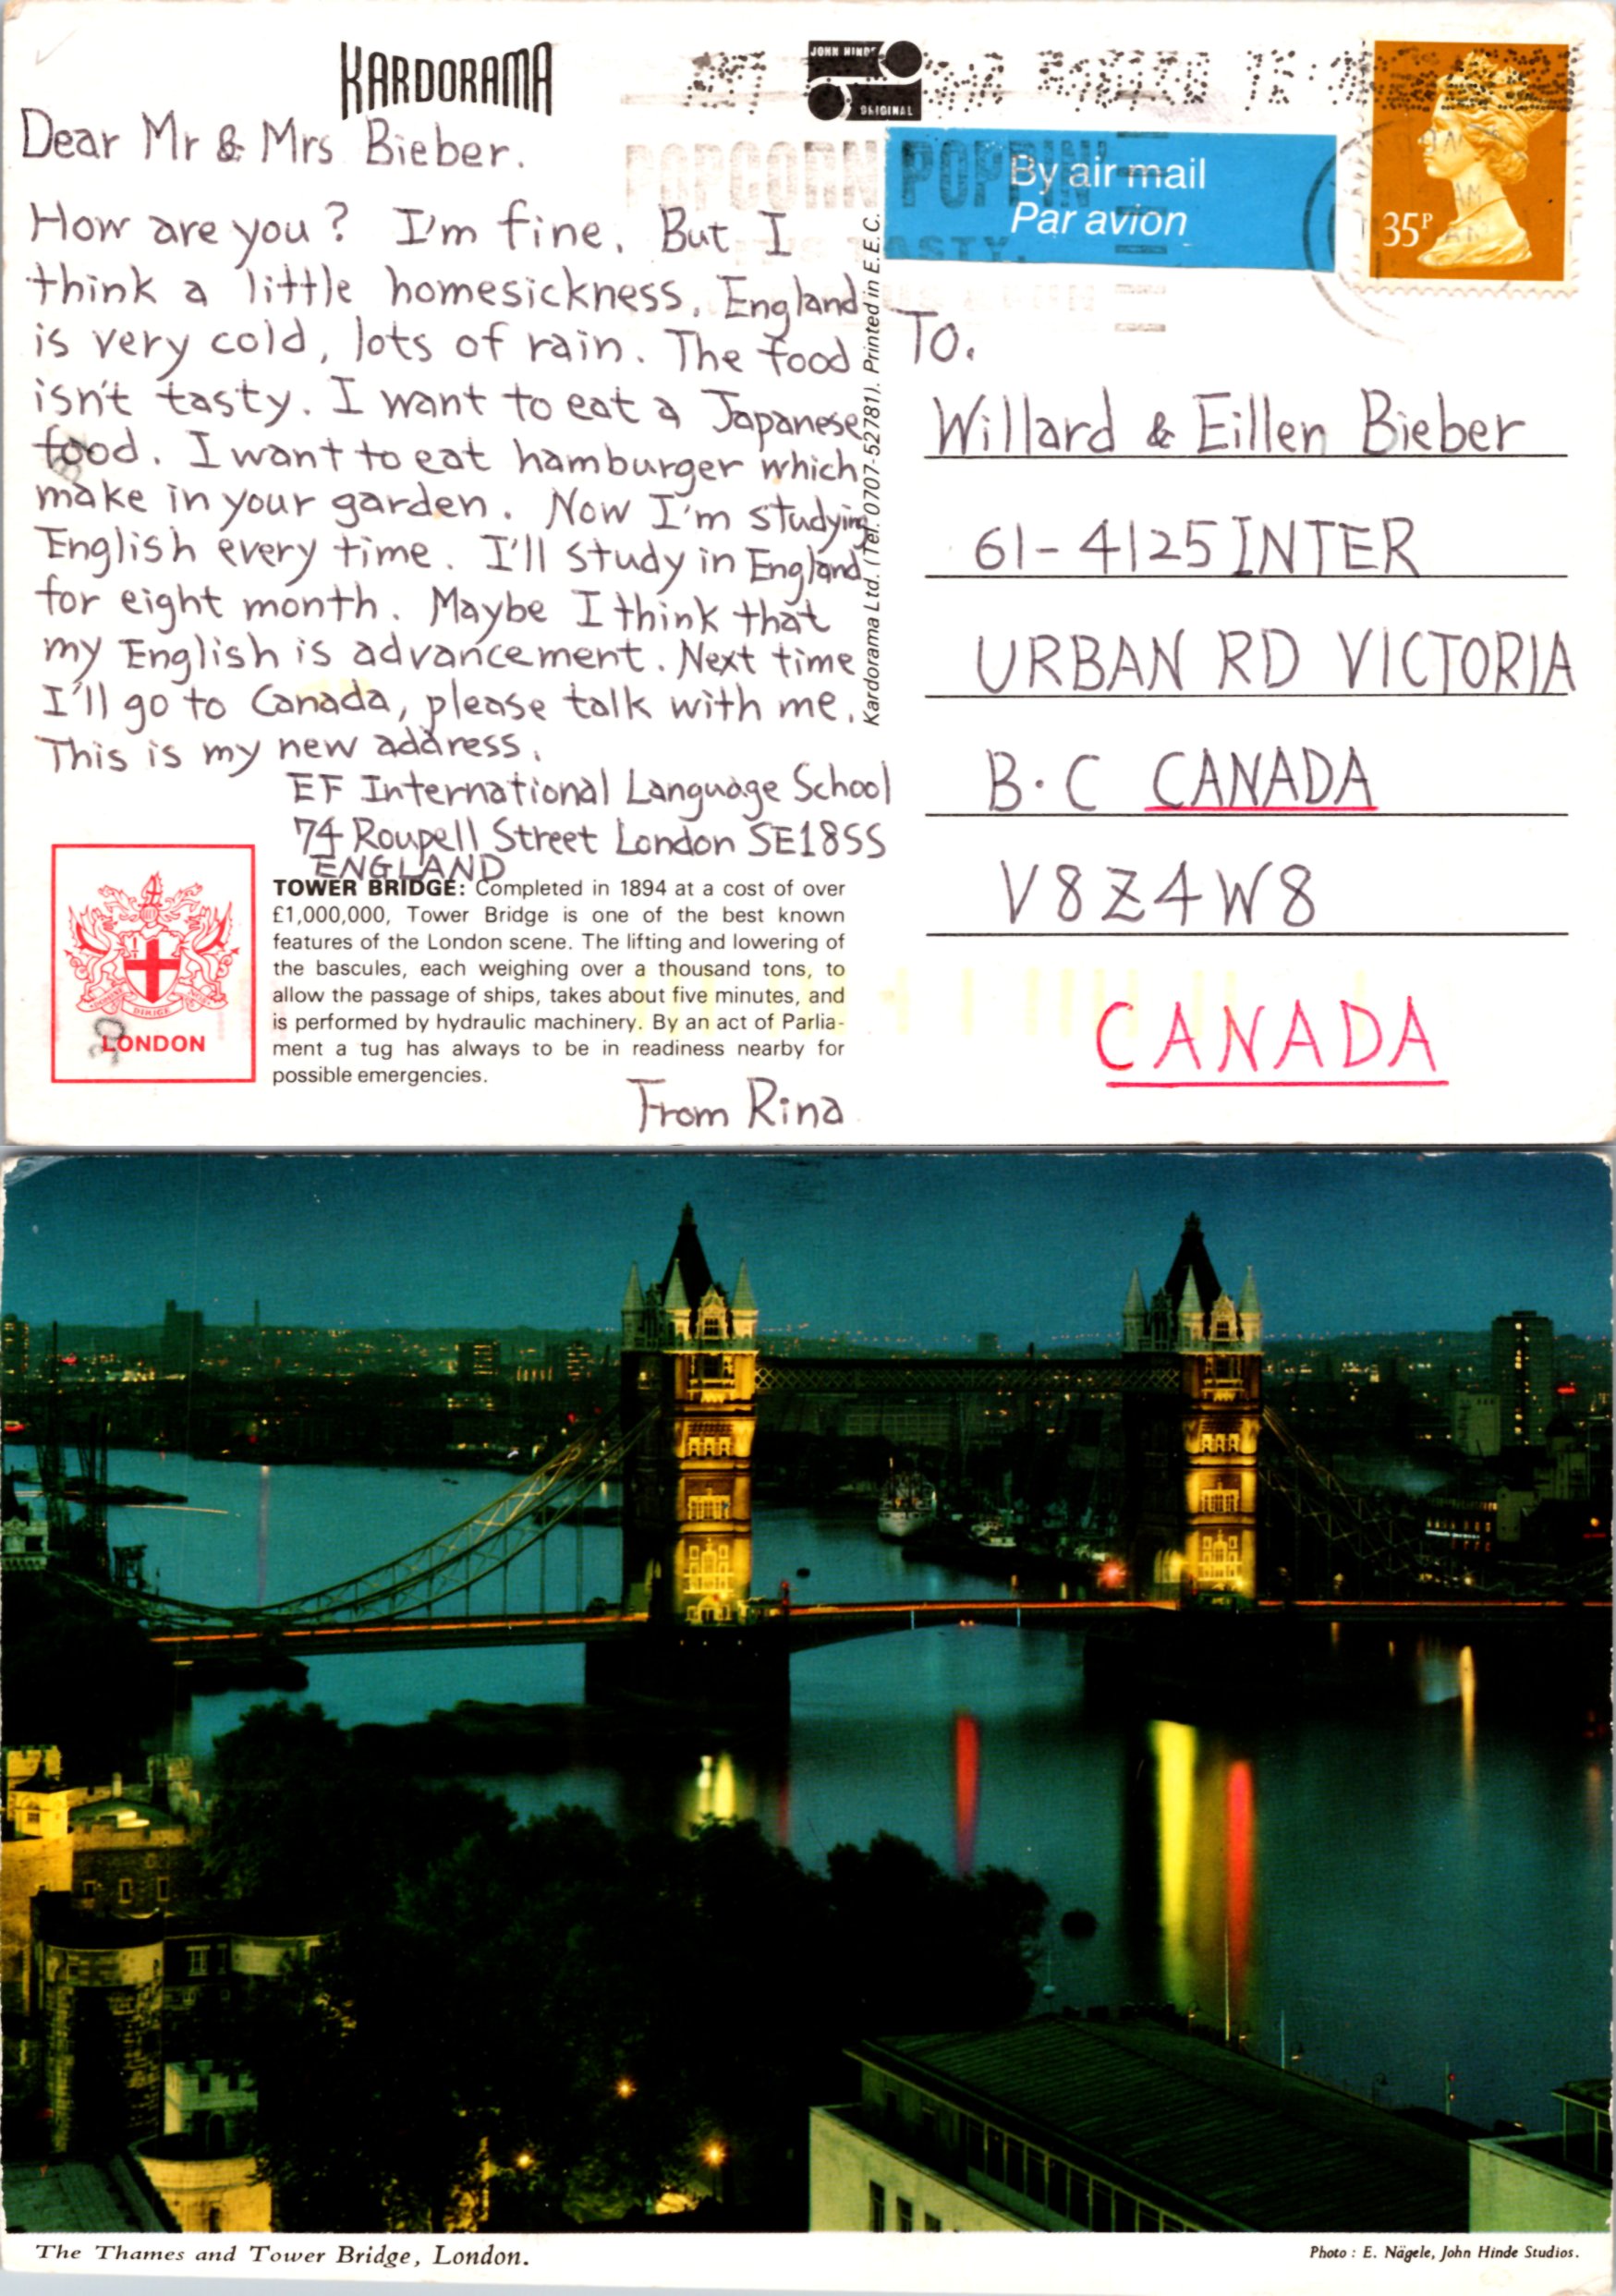 KARDORAMA
JOHN HINDE
ORIGINAL
POPCORN POPPIN'
TASTY.
By air mail
Par avion
35P
Dear Mr & Mrs Bieber.
How are you? I'm fine. But I
think a little homesickness. England
is very cold, lots of rain. The food
isn't tasty. I want to eat a Japanese
food. I want to eat hamburger which
make in your garden. Now I'm studying
English every time. I'll study in England
for eight month. Maybe I think that
my English is advancement. Next time
I'll go to Canada, please talk with me.
This is my new address.
EF International Language School
74 Roupell Street London SE18SS
ENGLAND
Kardorama Ltd. (Tel. 0707-52781). Printed in E.E.C.
To.
Willard & Eillen Bieber
61-4125 INTER
URBAN RD VICTORIA
B.C CANADA
V8Z4W8
CANADA
DIRIGE
LONDON
TOWER BRIDGE: Completed in 1894 at a cost of over
£1,000,000, Tower Bridge is one of the best known
features of the London scene. The lifting and lowering of
the bascules, each weighing over a thousand tons, to
allow the passage of ships, takes about five minutes, and
is performed by hydraulic machinery. By an act of Parlia-
ment a tug has always to be in readiness nearby for
possible emergencies.
From Rina
The Thames and Tower Bridge, London.
Photo : E. Nägele, John Hinde Studios.